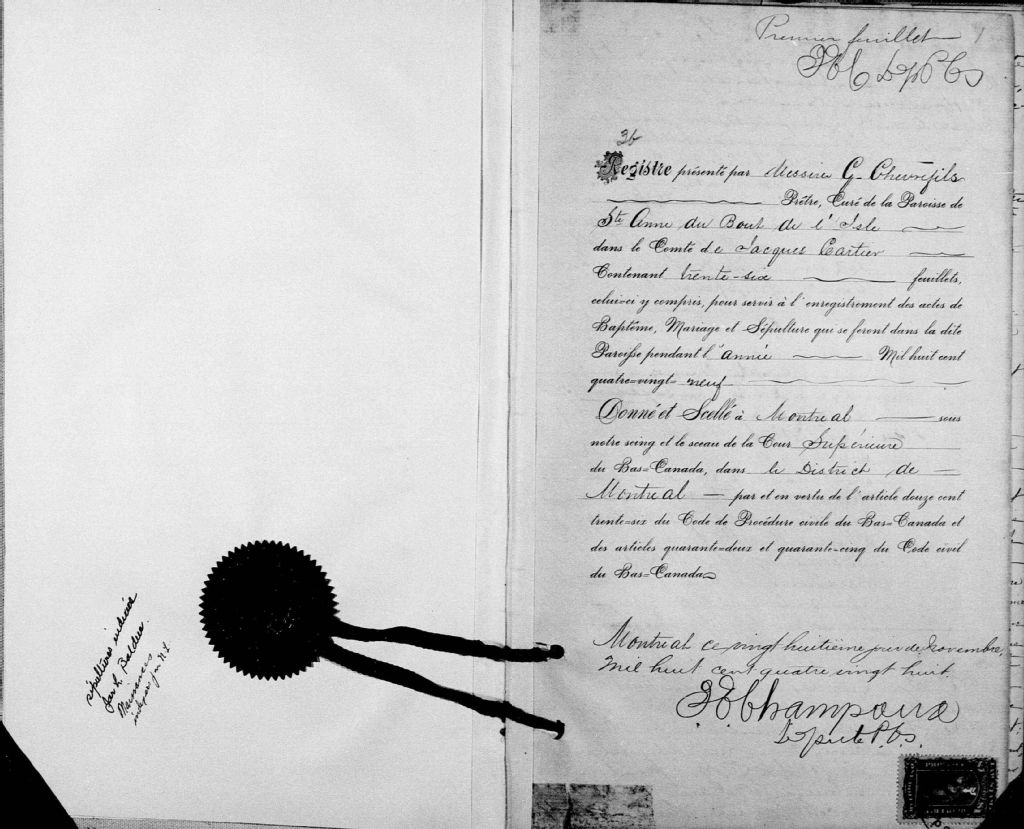 Premier feuillet 1
Dep P C S
36
Registre présenté par Messire G. Chevrefils
Prêtre, Curé de la Paroisse de
Ste Anne du Bout de l'Isle
dans le Comté de Jacques Cartier
Contenant trente-six feuillets,
celui-ci y compris, pour servir à l'enregistrement des actes de
Baptême, Mariage et Sépulture qui se feront dans la dite
Paroisse pendant l'année Mil huit cent
quatre=vingt=neuf
Donné et Scellé à Montreal sous
notre seing et le sceau de la Cour Supérieure
du Bas=Canada, dans le District de
Montreal par et en vertu de l'article douze cent
trente=six du Code de Procédure civile du Bas=Canada et
des articles quarante=deux et quarante=cinq du Code civil
du Bas=Canada
Montreal ce vingt huitième jour de Novembre,
Mil huit cent quatre vingt huit.
Champoux
Député P.C.S.
sépultures
par L.